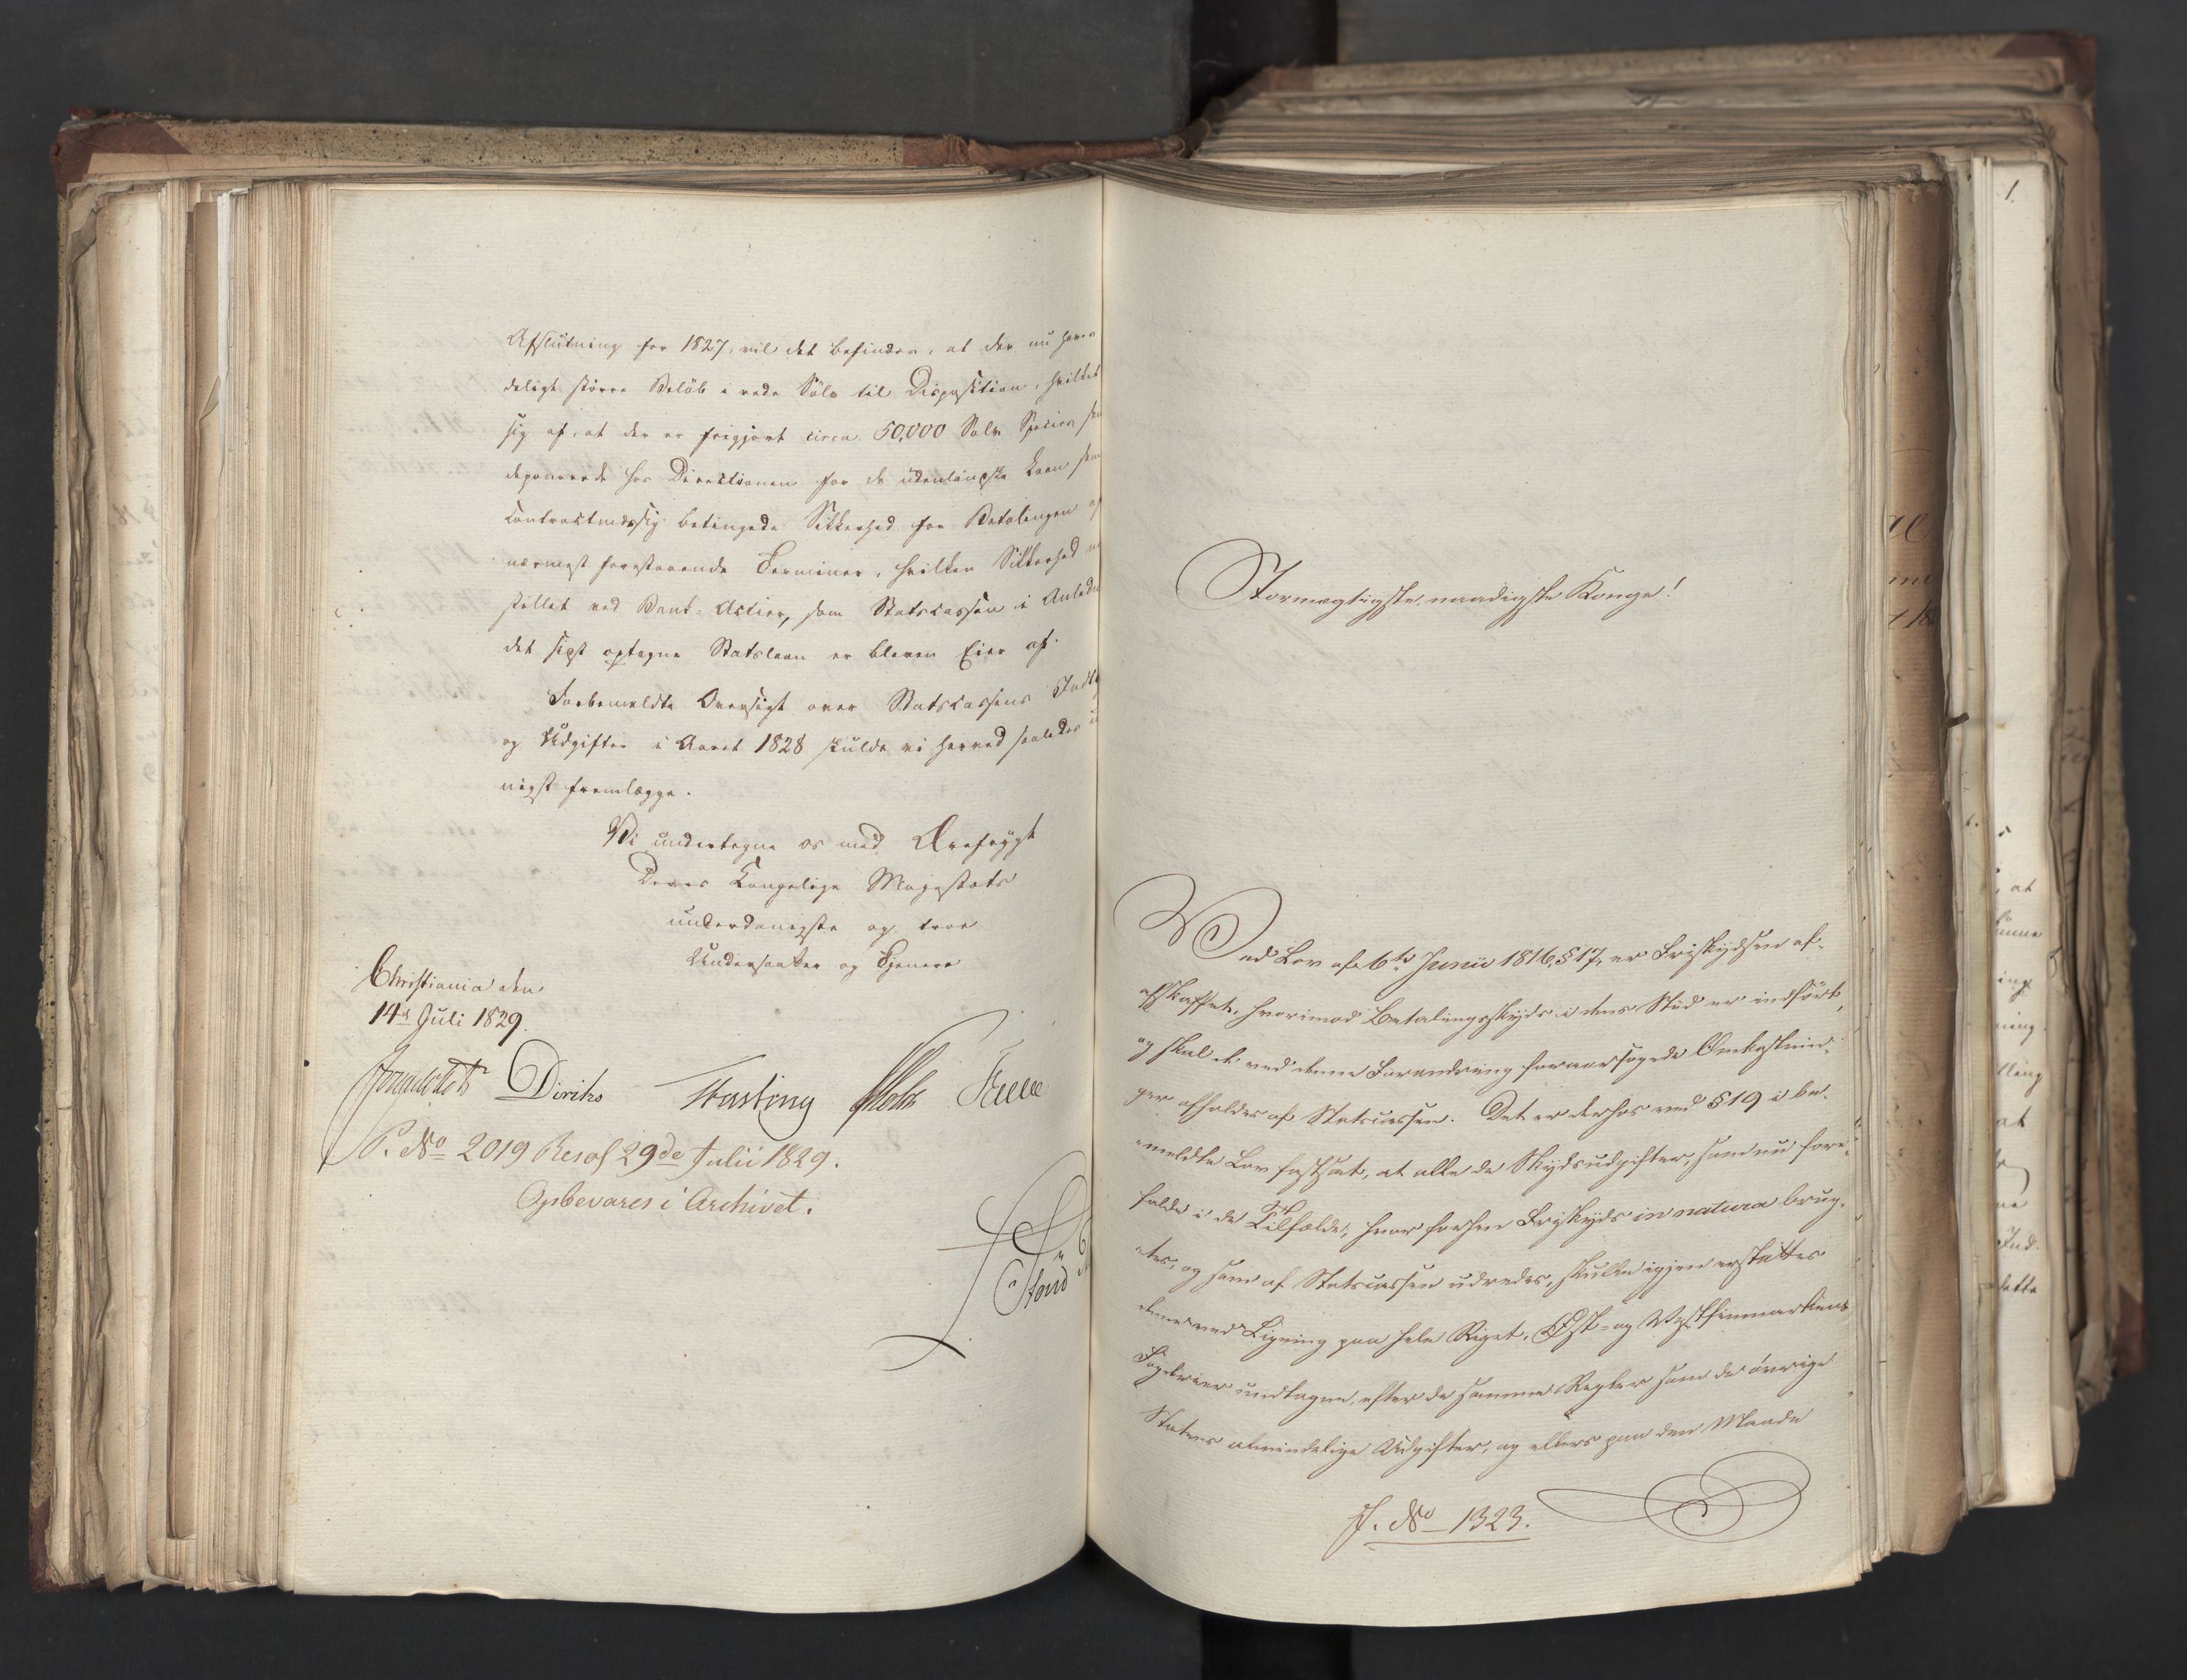 Afslutning for 1827, vil det befindes, at der nu haves
deligt större Beløb i rede Sølv til Disposition, hvilket
sig af, at der er frigjort circa 50,000 Sølv Species
deponerede hos Directionen for de udenlandske Laan som
contractmæssig betingede Sikkerhed for Betalingen af
nærmest forestaaende Terminer, hvilken Sikkerhed
stillet ved Bank-Actier, som Statskassen i Anledn
det sidst optagne Statslaan er bleven Eier af.
Forbemeldte Oversigt over Statskassens Indtæ
og Udgifter i Aaret 1828 skulde vi herved saaledes
nigst fremlægge.
Vi undertegne os med Ærefrygt
Deres Kongelige Majestæts
underdanigste og troe
Undersaatter og Tjenere
Christiania den
14d Juli 1829.
Diriks Fasting Holst
P. No 2019 Resol 29de Julii 1829.
Opbevares i Archivet.
Stormægtigste, naadigste Konge!
Ved Lov af 6te Junii 1816, § 17, er Friskydsen af-
afskaffet, hvorimod Betalingsskyds i dens Sted er indført,
og skal de ved denne Forandring foraarsagede Omkostnin-
ger afholdes af Statscassen. Det er derhos ved § 19 i be-
meldte Lov fastsat, at alle de Skydsudgifter, som nu fore-
falde i de Tilfælde, hvor forhen Friskyds in natura brug-
tes, og som af Statscassen udredes, skulle igjen erstattes
denne ved Ligning paa hele Riget, Øst- og Vestfinmarkens
Fogderier undtagne, efter de samme Regler som de øvrige
Statens almindelige Udgifter, og ellers paa den Maade
J. No 1323.